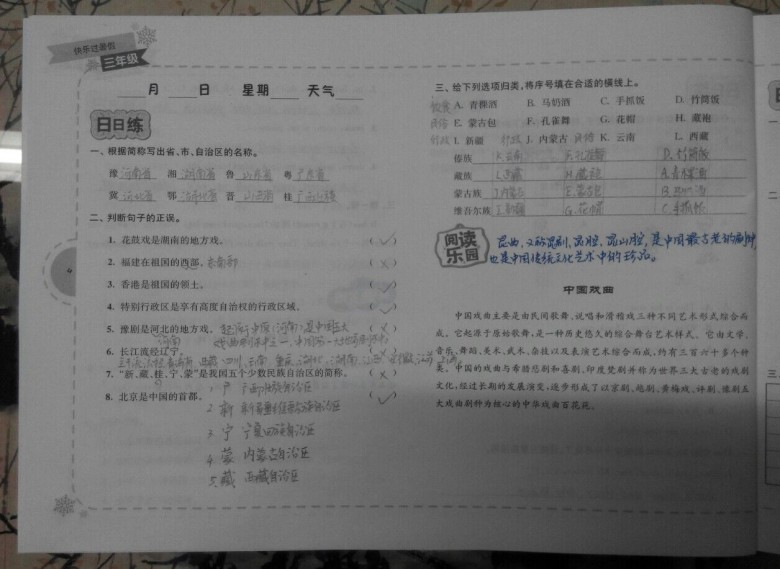 快乐过暑假
三年级
月 日 星期 天气
日日练
一、根据简称写出省、市、自治区的名称。
豫 河南省 湘 湖南省 鲁 山东省 粤 广东省
冀 河北省 鄂 湖北省 晋 山西省 桂 广西
二、判断句子的正误。
1. 花鼓戏是湖南的地方戏。 (✓)
2. 福建在祖国的西部。 东南部 (×)
3. 香港是祖国的领土。 (✓)
4. 特别行政区是享有高度自治权的行政区域。 (✓)
5. 豫剧是河北的地方戏。 起源于中原(河南)是中国五大 (×)
河南
6. 长江流经辽宁。 (×)
西藏 四川 云南 重庆 湖北 湖南 江西 安徽 江苏 上海
7. “新、藏、桂、宁、蒙”是我国五个少数民族自治区的简称。 (×)
1、广西壮族自治区
8. 北京是中国的首都。 (✓)
2、新 新疆维吾尔族自治区
3、宁 宁夏回族自治区
4、蒙 内蒙古自治区
5、藏 西藏自治区
三、给下列选项归类,将序号填在合适的横线上。
饮食 A. 青稞酒 B. 马奶酒 C. 手抓饭 D. 竹筒饭
民俗 E. 蒙古包 F. 孔雀舞 G. 花帽 H. 藏袍
I. 新疆 J. 内蒙古 K. 云南 L. 西藏
傣族 K.云南 F.孔雀舞 D.竹筒饭
藏族 L.西藏 H.藏袍 A.青稞酒
蒙古族 J.内蒙古 E.蒙古包 B.马奶酒
维吾尔族 I.新疆 G.花帽 C.手抓饭
阅读乐园
昆曲,又称昆剧,昆腔,昆山腔,是中国最古老的剧种
也是中国传统文化艺术中的珍品。
中国戏曲
中国戏曲主要是由民间歌舞、说唱和滑稽戏三种不同艺术形式综合而
成。它起源于原始歌舞,是一种历史悠久的综合舞台艺术样式。它由文学、
音乐、舞蹈、美术、武术、杂技以及表演艺术综合而成,约有三百六十多个种
类。中国的戏曲与希腊悲剧和喜剧、印度梵剧并称为世界三大古老的戏剧
文化,经过长期的发展演变,逐步形成了以京剧、越剧、黄梅戏、评剧、豫剧五
大戏曲剧种为核心的中华戏曲百花苑。